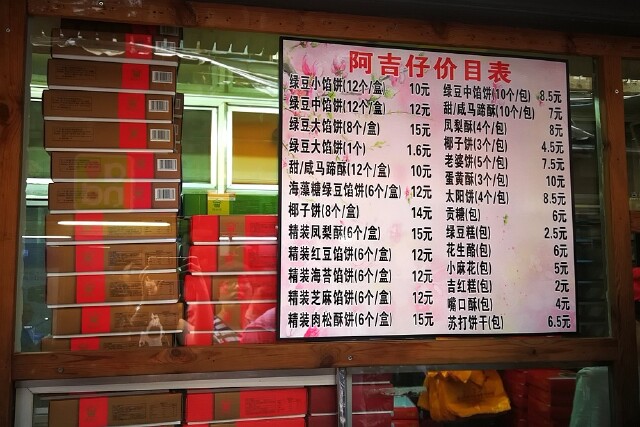 阿吉仔价目表
绿豆小馅饼(12个/盒) 10元
绿豆中馅饼(12个/盒) 12元
绿豆大馅饼(8个/盒) 15元
绿豆大馅饼(1个) 1.6元
甜/咸马蹄酥(12个/盒) 10元
海藻糖绿豆馅饼(6个/盒) 12元
椰子饼(8个/盒) 14元
精装凤梨酥(6个/盒) 15元
精装红豆馅饼(6个/盒) 12元
精装海苔馅饼(6个/盒) 12元
精装芝麻馅饼(6个/盒) 12元
精装肉松酥饼(6个/盒) 15元
绿豆中馅饼(10个/包) 8.5元
甜/咸马蹄酥(10个/包) 7元
凤梨酥(4个/包) 8元
椰子饼(3个/包) 4.5元
老婆饼(5个/包) 7.5元
蛋黄酥(3个/包) 10元
太阳饼(4个/包) 8.5元
贡糖(包) 6元
绿豆糕(包) 2.5元
花生酪(包) 6元
小麻花(包) 5元
吉红糕(包) 2元
嘴口酥(包) 4元
苏打饼干(包) 6.5元